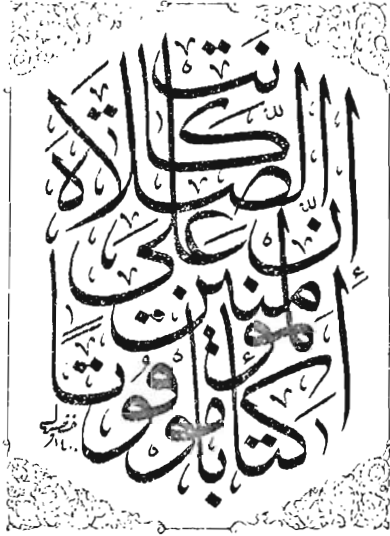 إِنَّ الصَّلَاةَ كَانَتْ
عَلَى الْمُؤْمِنِينَ
كِتَابًا مَوْقُوتًا